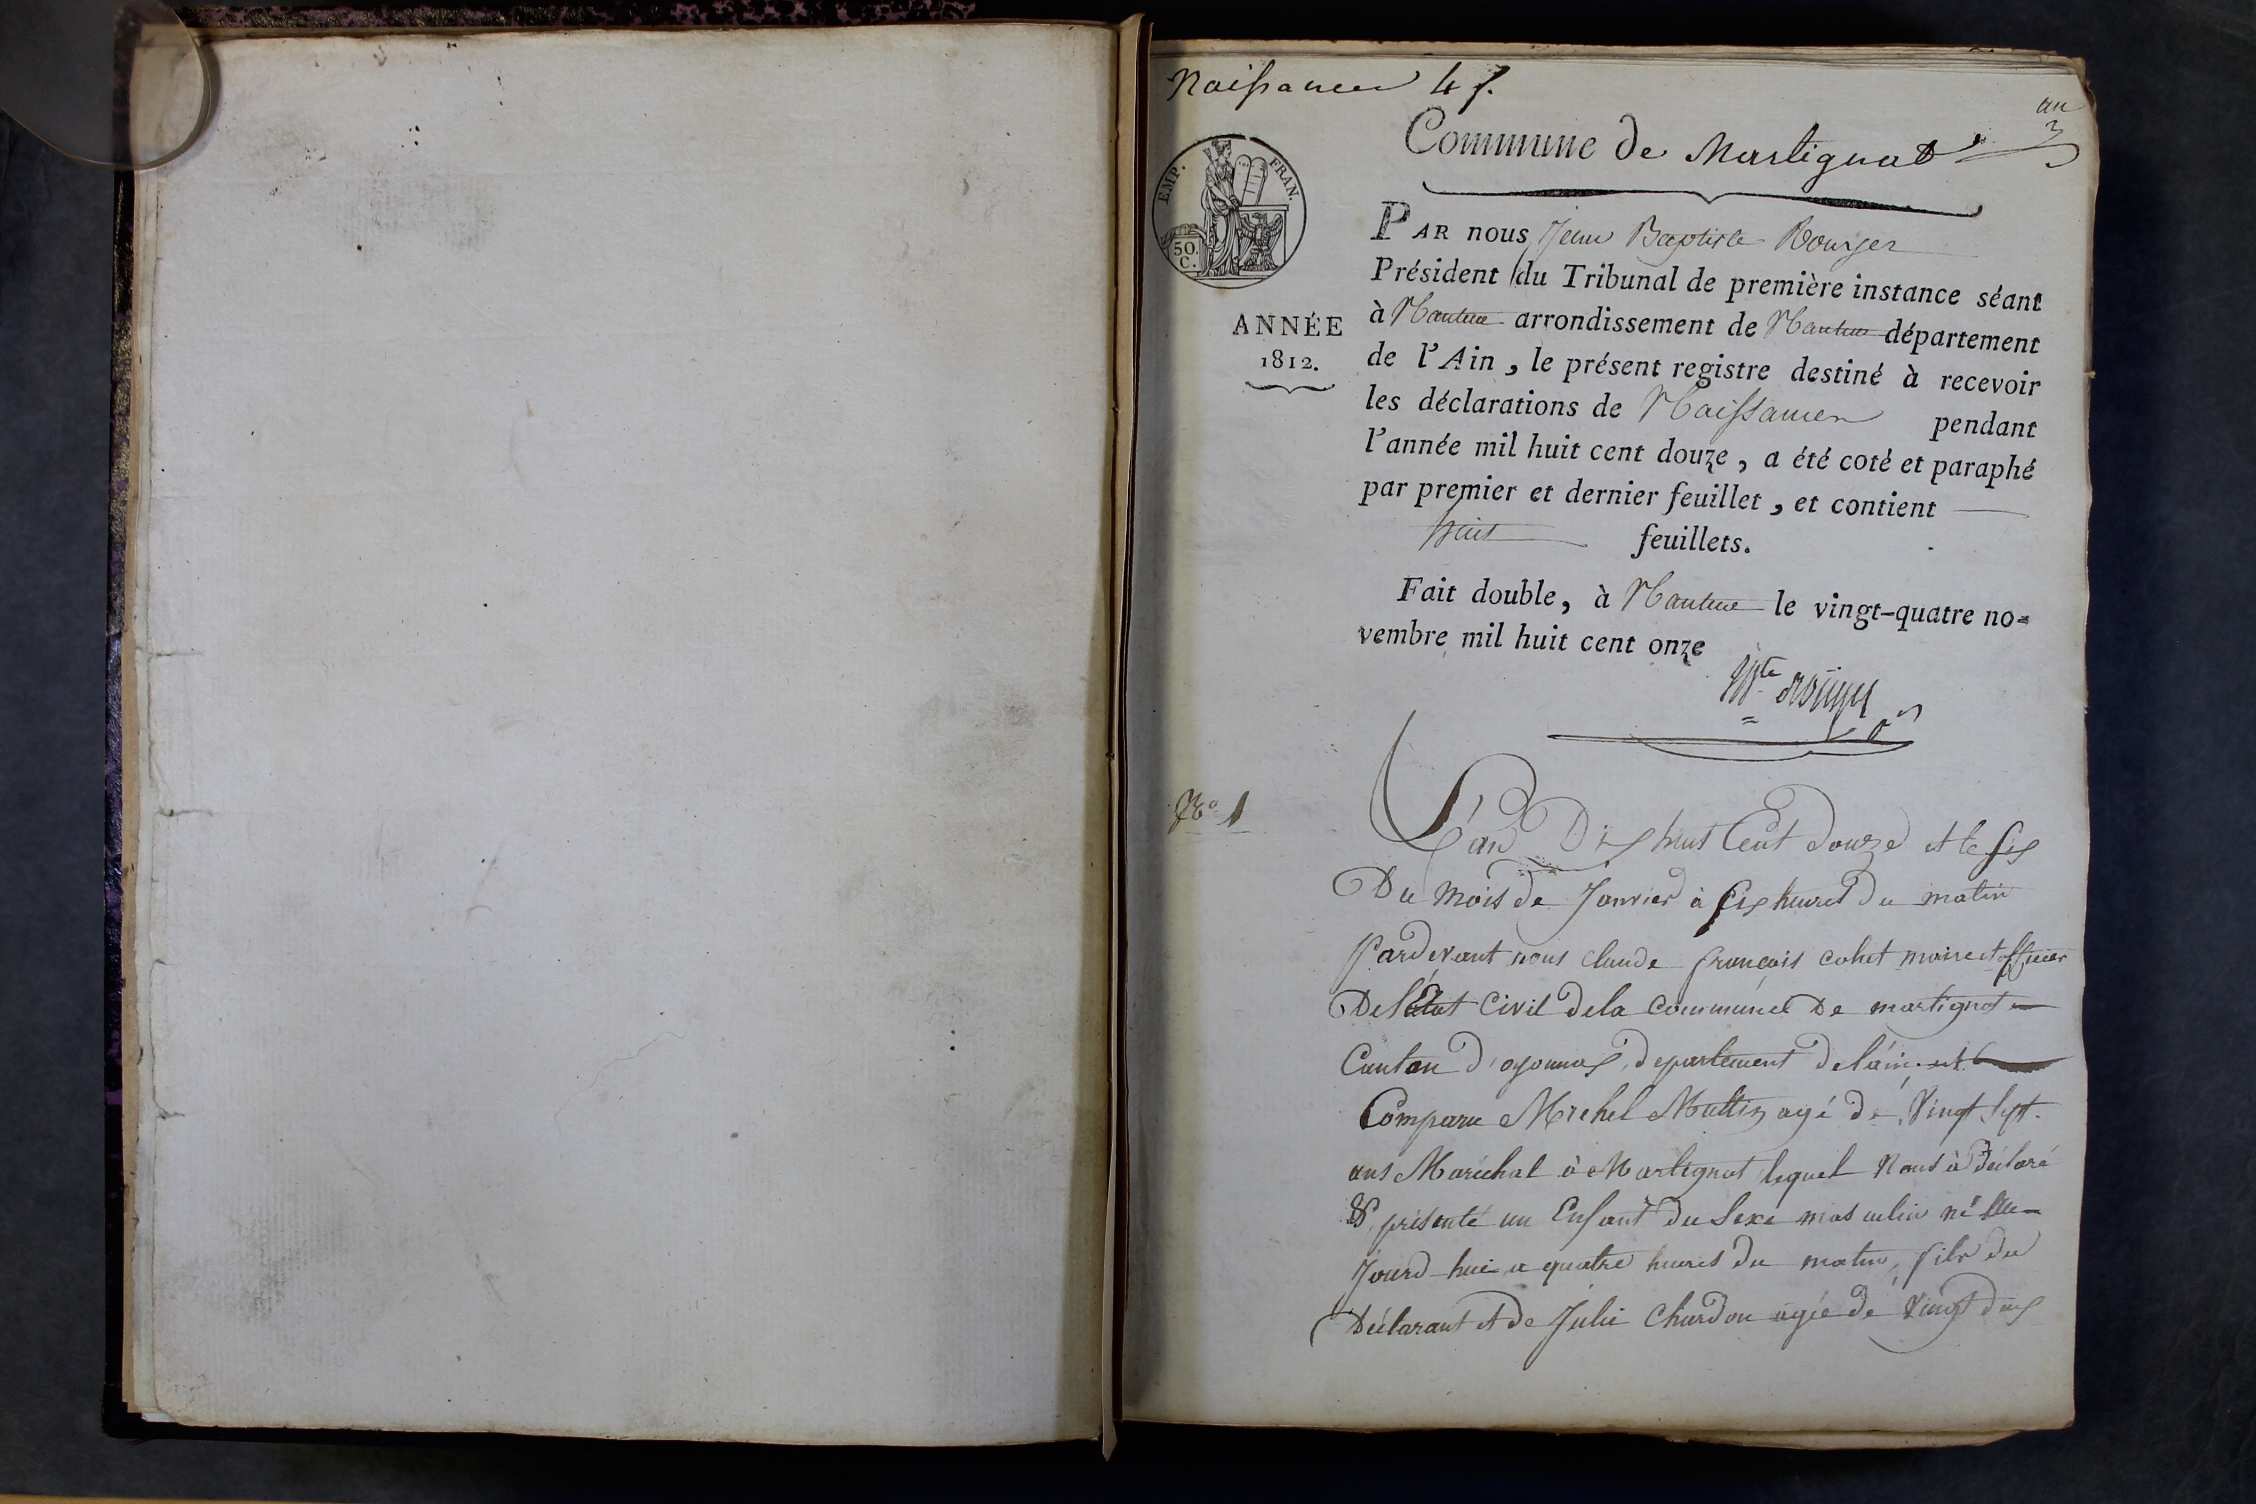 Naissances 4 f.
an
3
Commune de Martignat
EMP. FRAN.
50.
C.
PAR nous Jean Baptiste Rouyer
Président du Tribunal de première instance séant
à Nantua arrondissement de Nantua département
ANNÉE
1812.
de l'Ain, le présent registre destiné à recevoir
les déclarations de Naissances pendant
l'année mil huit cent douze, a été coté et paraphé
par premier et dernier feuillet, et contient
huit feuillets.
Fait double, à Nantua le vingt-quatre no=
vembre mil huit cent onze
No 1
L'an Dix huit Cent Douze et le six
Du Mois de Janvier à six heures Du matin
Pardevant nous claude francois cohet maire et officier
De l'Etat Civil de la Commune De martignat
Canton d'oyonnax, departement de l'ain. est
Comparu Michel Mattin agé de Vingt sept
ans Maréchal à Martignat lequel Nous à Déclaré
& présenté un Enfant Du sexe masculin né au-
Jourd-hui a quatre heures Du matin, fils du
Déclarant et De Julie Chardon agée de Vingt deux